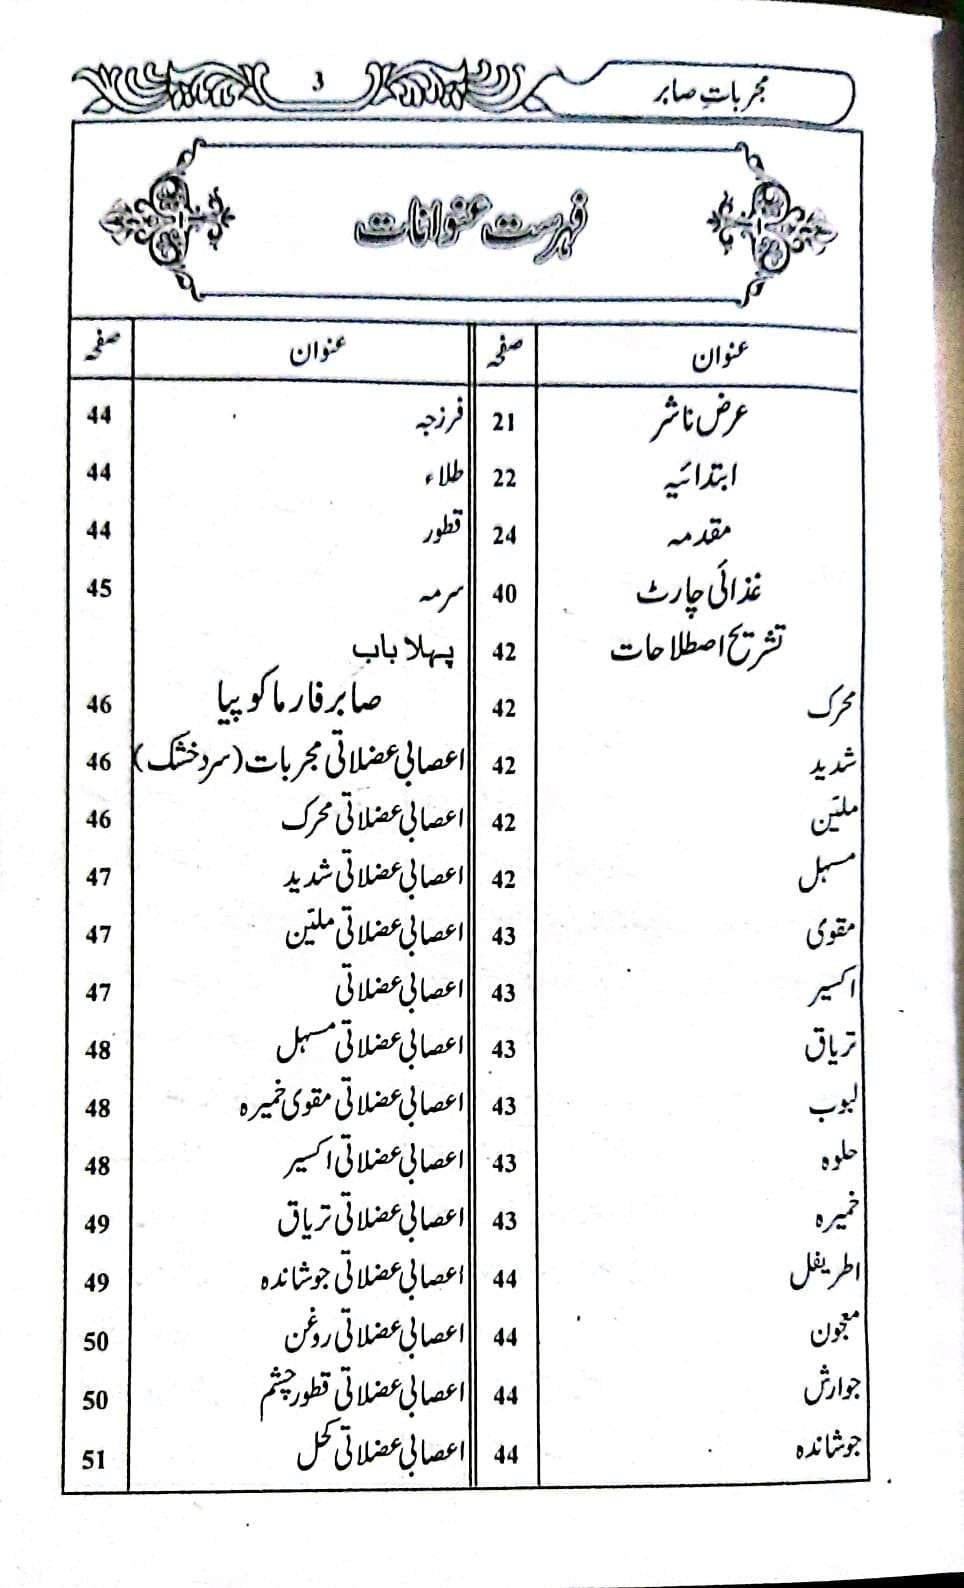 مجرباتِ صابر
3
فہرست عنوانات
عنوان صفحہ
عرض ناشر 21
ابتدائیہ 22
مقدمہ 24
غذائی چارٹ 40
تشریح اصطلاحات 42
محرک 42
شدید 42
ملیّن 42
مسہل 42
مقوی 43
اکسیر 43
تریاق 43
لبوب 43
حلوہ 43
خمیرہ 43
اطریفل 44
معجون 44
جوارش 44
جوشاندہ 44
عنوان صفحہ
فرزجہ 44
طلاء 44
قطور 44
سرمہ 45
پہلا باب
صابر فارماکوپیا 46
اعصابی عضلاتی مجربات (سرد خشک) 46
اعصابی عضلاتی محرک 46
اعصابی عضلاتی شدید 47
اعصابی عضلاتی ملیّن 47
اعصابی عضلاتی 47
اعصابی عضلاتی مسہل 48
اعصابی عضلاتی مقوی خمیرہ 48
اعصابی عضلاتی اکسیر 48
اعصابی عضلاتی تریاق 49
اعصابی عضلاتی جوشاندہ 49
اعصابی عضلاتی روغن 50
اعصابی عضلاتی قطور چشم 50
اعصابی عضلاتی کحل 51